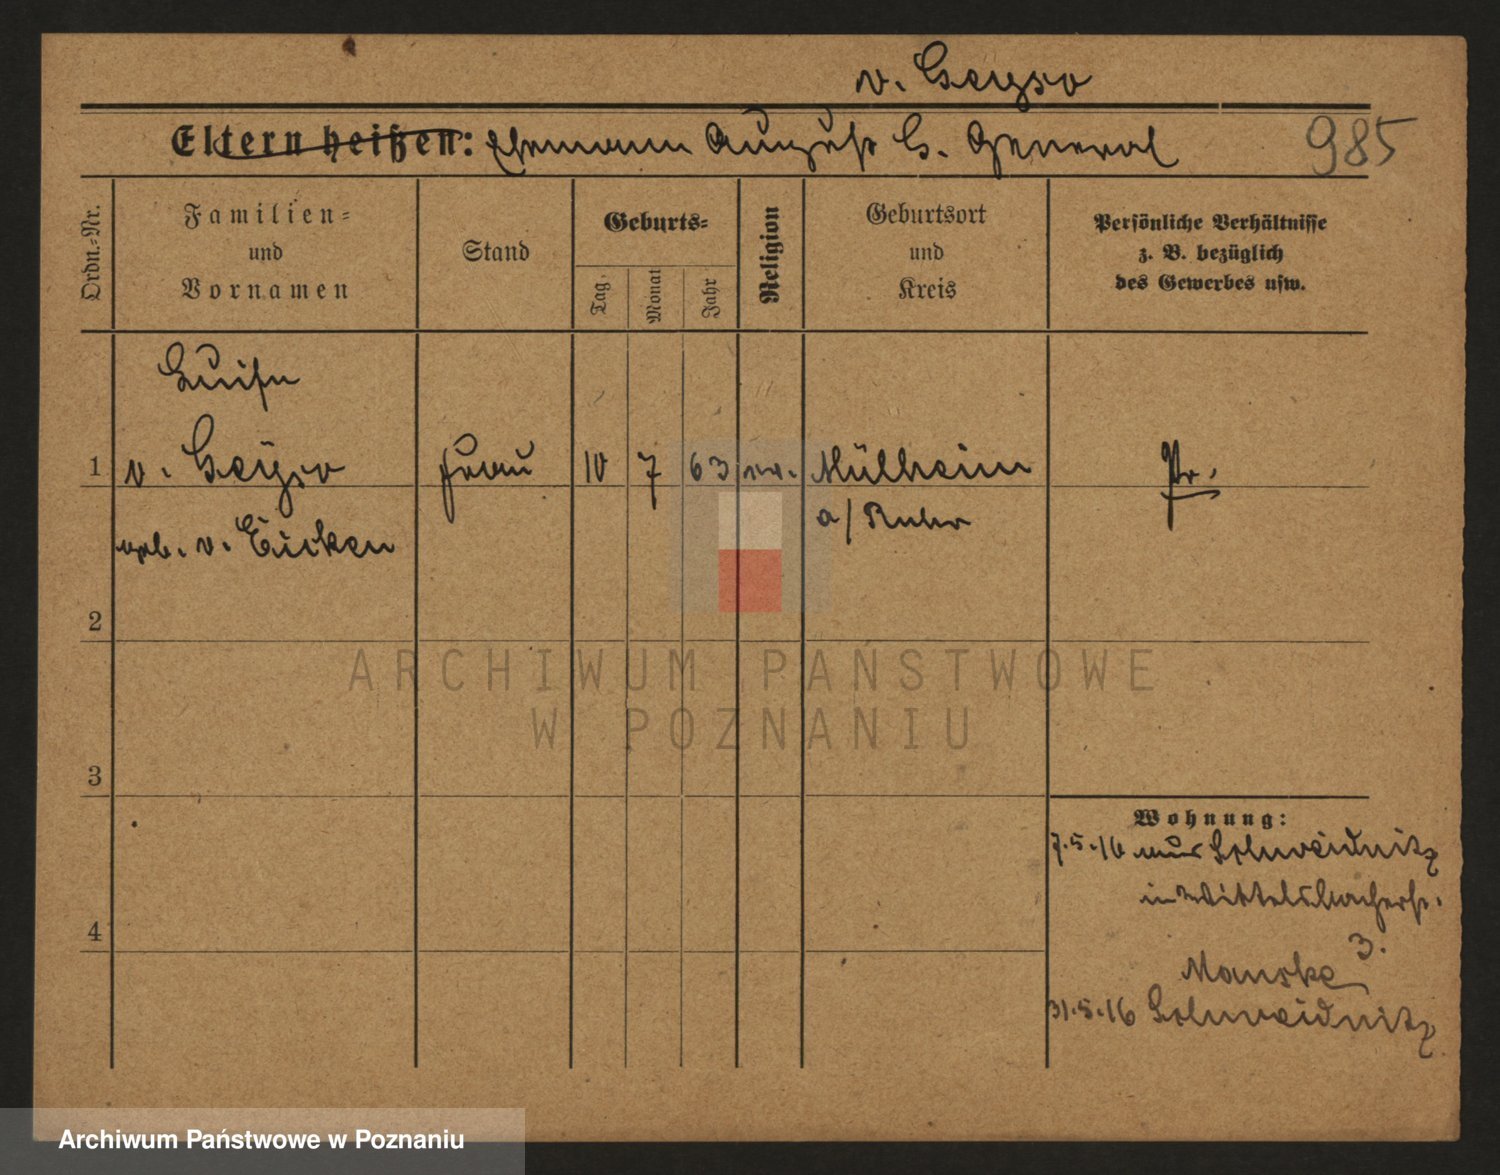 v. Geyso
Eltern heißen: Ehemann August G. General
985
Ordn.=Nr.
Familien=
und
Vornamen
Stand
Geburts=
Tag.
Monat
Jahr
Religion
Geburtsort
und
Kreis
Persönliche Verhältnisse
z. B. bezüglich
des Gewerbes usw.
Luise
1 v. Geyso Frau 10 7 63 ev. Mülheim Pr.
a/Ruhr
geb. v. Eicken
2
3
4
Wohnung:
7.5.16 aus Schweidnitz
in Wittelsbacherst.
3.
Manske
31.5.16 Schweidnitz
ARCHIWUM PAŃSTWOWE
W POZNANIU
Archiwum Państwowe w Poznaniu